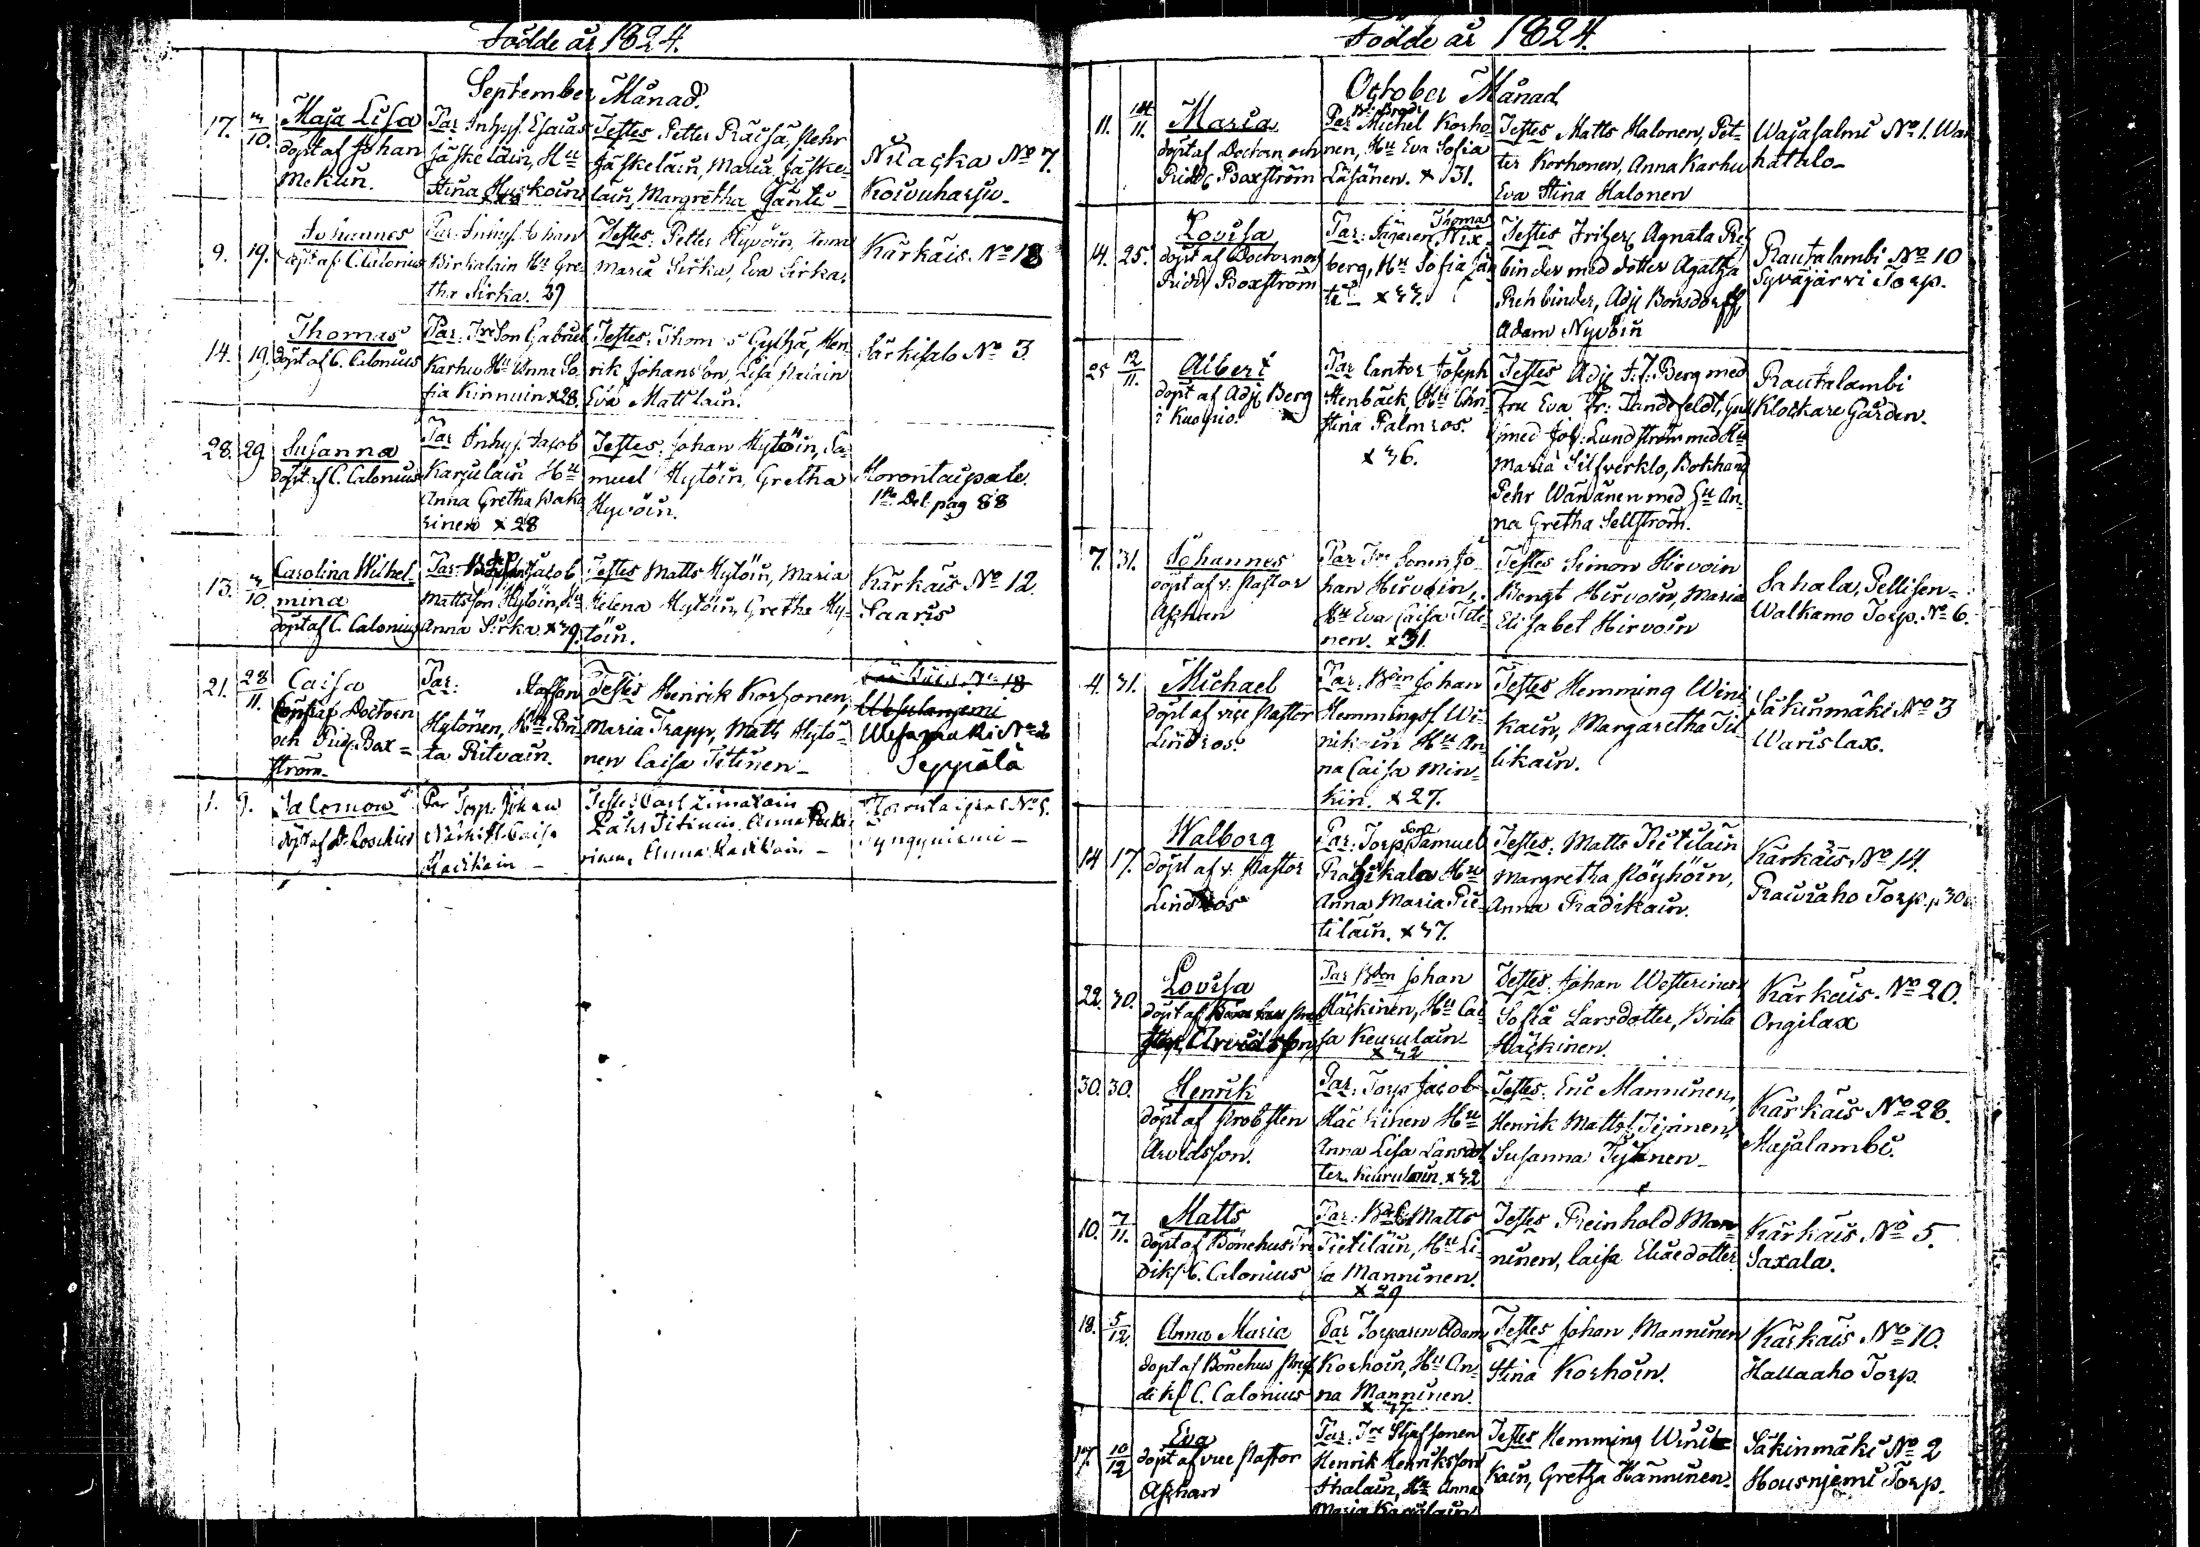 Födde år 1824.
September Månad.
17. 3/10. Maja Lisa
döpt af Johan
Mekun.
Par Inhys. Esaias
Jäskeläin, Hu
Stina Huskoin
Testes Petter Räisä, Pehr
Jäskeläin, Maria Jäske-
läin, Margretha Jänti
Nilacka No 7.
Koivuharju.
9. 19. Johannes
döpt af C. Calonius
Par: Inhys. Johan
Pirkalain Hu Gre-
tha Sirka. 29
Testes: Petter Hyvöin,
Maria Sirka, Eva Sirka.
Kärkäis. No 18
14. 19. Thomas
döpt af C. Calonius
Par: Gabriel
Karhu Hu Anna So-
fia Kinnuin x 28.
Testes: Thomas Hen-
rik Johansson, Lisa
Eva Mattlain.
Särkisalo No 3.
28. 29 Susanna
döpt af C. Calonius
Par Inhys. Jacob
Karjulain Hu
Anna Gretha
rinen x 28
Testes: Johan Hytöin, Sa-
muel Hytöin, Gretha
Hyvöin.
Horontaipale.
1sta Del. pag 88
13. 3/10. Carolina Wilhel-
mina
döpt af C. Calonius
Par: Jacob
Mattsson Hytöin, Hu
Anna Sirka x 39.
Testes Matts Hytöin, Maria
Helena Hytöin, Gretha Hy-
töin.
Kärkäis No 12.
Saaris
21. 28/11. Caisa
döpt af Doctorn
och Prid. Box-
ström.
Par: Staffan
Hytönen, Hu Bri-
ta Ritvain.
Testes Henrik Korhonen,
Maria Trapp, Matts Hytö-
nen Caisa Titinen
Kärkäis No 18
Wesamäki No 2
Seppälä
1. 9. Salomon
döpt af
Par Torp. Johan
Hu Caisa
Testes Carl Limatain
Lars Titinen. Anna
Anna
No 5.

Födde år 1824.
October Månad
11. 14/11. Maria
döpt af Doctorn och
Prid. Boxström
Par Michel Korho-
nen, Hu Eva Sofia
Läsänen. x 31.
Testes Matts Halonen, Pet-
ter Korhonen, Anna Karhu
Eva Stina Halonen
Wajasalmi No 1. Wan
hatalo
14. 25. Lovisa
döpt af Doctorn och
Prid. Boxström
Par: Jägaren Thomas Nix-
berg, Hu Sofia Jän
ti x 37.
Testes Agnata Reh
binder med dotter Agatha
Rehbinder, Adj Bonsdorff,
Adam Nyvöin
Rautalambi No 10
Syväjärvi Torp.
25 12/11. Albert
döpt af Adj. Berg
i Kuopio.
Par Cantor Joseph
Stenbäck, Hu Chri-
stina Palmros.
x 36.
Testes Adj J. J. Berg med
Fru Eva Fr: Tandefeldt,
med Joh: Lundström med Hu
Maria Silfverklo, Bokhand
Pehr Wänänen med Hu An-
na Gretha Sellström.
Rautalambi
Klockare Gården.
7. 31. Johannes
döpt af v. Pastor
Aschan
Par Sonen Jo-
han Hirvoin,
Hu Eva Caisa Titi-
nen. x 31.
Testes Simon Hirvoin
Bengt Hirvoin, Maria
Elisabet Hirvoin
Sahala, Pellisen-
Walkamo Torp. No 6.
4. 31. Michael
döpt af vice Pastor
Lindros.
Par: Bden Johan
Hemmingss. Wi-
nikain Hu An-
na Caisa Min-
kin. x 27.
Testes Hemming Wini
kain, Margaretha Til
likain.
Säkinmäki No 3
Warislax.
14 17. Walborg
döpt af v. Pastor
Lindros
Par: Torp. Son Samuel
Hu
Anna Maria Pie-
tiläin. x 37.
Testes: Matts Pietiläin
Margretha Pöyhöin,
Anna Radikain.
Kärkäis No 14.
Rauviaho Torp. p 30
22. 30. Lovisa
döpt af
Arvidsson
Par Bden Johan
Häckinen, Hu Cai
sa Keurulain
x 32
Testes. Johan Westerinen
Sofia Larsdotter, Brita
Häckinen.
Kärkäis. No 20.
Ongilax
30. 30. Henrik
döpt af Probsten
Arvidsson.
Par: Torp Jacob
Häckinen Hu
Anna Lisa Larsdot
ter Keurulain. x 32
Testes: Eric Manninen,
Henrik Matts. Tijrinen,
Susanna Tytinen
Kärkäis No 28.
Majalambi.
10. 7/11. Matts
döpt af Bönehus Pre
dik. C. Calonius
Par: Matts
Pietiläin, Hu Li-
sa Manninen.
x 29
Testes Reinhold Man-
ninen, Caisa Eliaedotter
Kärkäis No 5.
Saxala.
18. 5/12. Anna Maria
döpt af Bönehus Pre
dik. C. Calonius
Par Torparen Adam
Korhoin, Hu An-
na Manninen.
x 37.
Testes Johan Manninen
Stina Korhoin.
Kärkäis No 10.
Hallaaho Torp.
17. 10/12 Eva
döpt af vice Pastor
Aschan
Par:
Henrik Henriksson
Ahalain, Hu Anna
Maria Karjalain
Testes Hemming Wini-
kain, Gretha Hänninen.
Säkinmäki No 2
Housnjemi Torp.